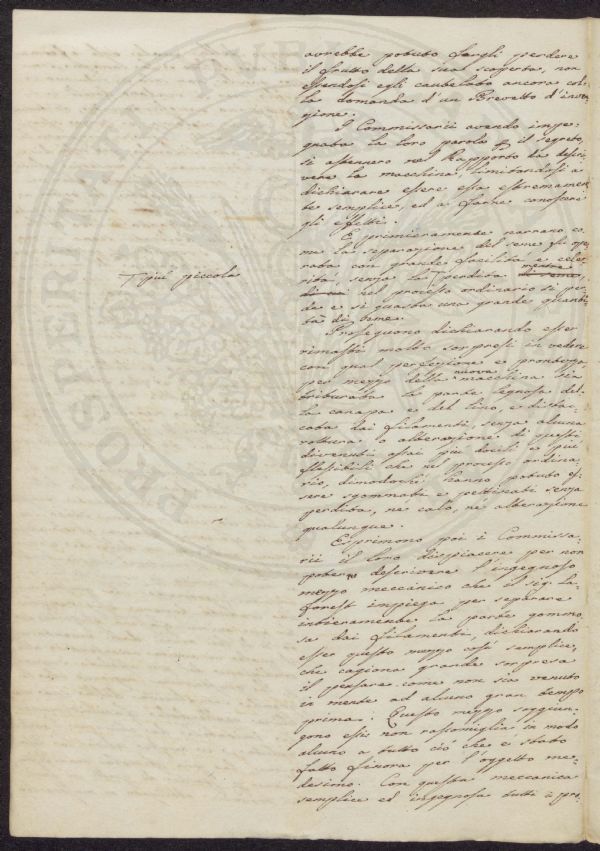 avrebbe potuto fargli perdere
il frutto della sua scoperta, non
essendosi egli cautelato ancora col-
la domanda d'un Brevetto d'inven-
zione.
I Commissarii avendo impe-
gnata la loro parola pel segreto,
si astennero nel Rapporto da descri-
vere la macchina, limitandosi a
dichiarare essere essa estremamen-
te semplice, ed a farne conoscere
gli effetti.
E primieramente narrano co-
me la separazione del seme si ope-
rava con grande facilità e cele-
rità, senza la perdita mentre
più piccola
nel processo ordinario si per-
de e si guasta una grande quanti-
tà di seme.
Proseguono dichiarando esser
rimasti molto sorpresi in vedere
con qual perfezione e prontezza
per mezzo della nuova macchina si
triturava la parte legnosa del-
la canapa e del lino, e distac-
cata dai filamenti, senza alcuna
rottura o alterazione di questi
divenuti assai più docili e più
flessibili che nel processo ordina-
rio, dimodochè hanno potuto es-
sere sgommati e pettinati senza
perdita, nè calo, nè alterazione
qualunque.
Esprimono poi i Commissa-
rii il loro dispiacere per non
poter descrivere l'ingegnoso
mezzo meccanico che il sig. La-
forest impiega per separare
intieramente la parte gommo-
sa dai filamenti, dichiarando
esser questo mezzo così semplice,
che cagiona grande sorpresa
il pensare come non sia venuto
in mente ad alcuno gran tempo
prima. Questo mezzo soggiun-
gono essi non rassomiglia in modo
alcuno a tutto ciò che è stato
fatto finora per l'oggetto me-
desimo. Con questa meccanica
semplice ed ingegnosa tutti i pro-